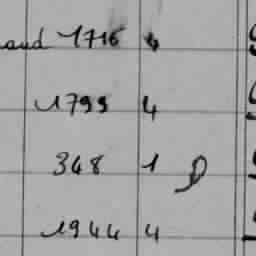 aud 1716 4
1799 4
348 1
1944 4